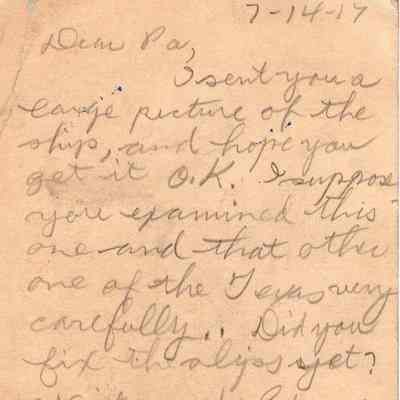 7-14-17
Dear Pa,
I sent you a
large picture of the
ship, and hope you
get it O.K. I suppose
you examined this
one and that other
one of the Texas very
carefully.. Did you
fix the yet?